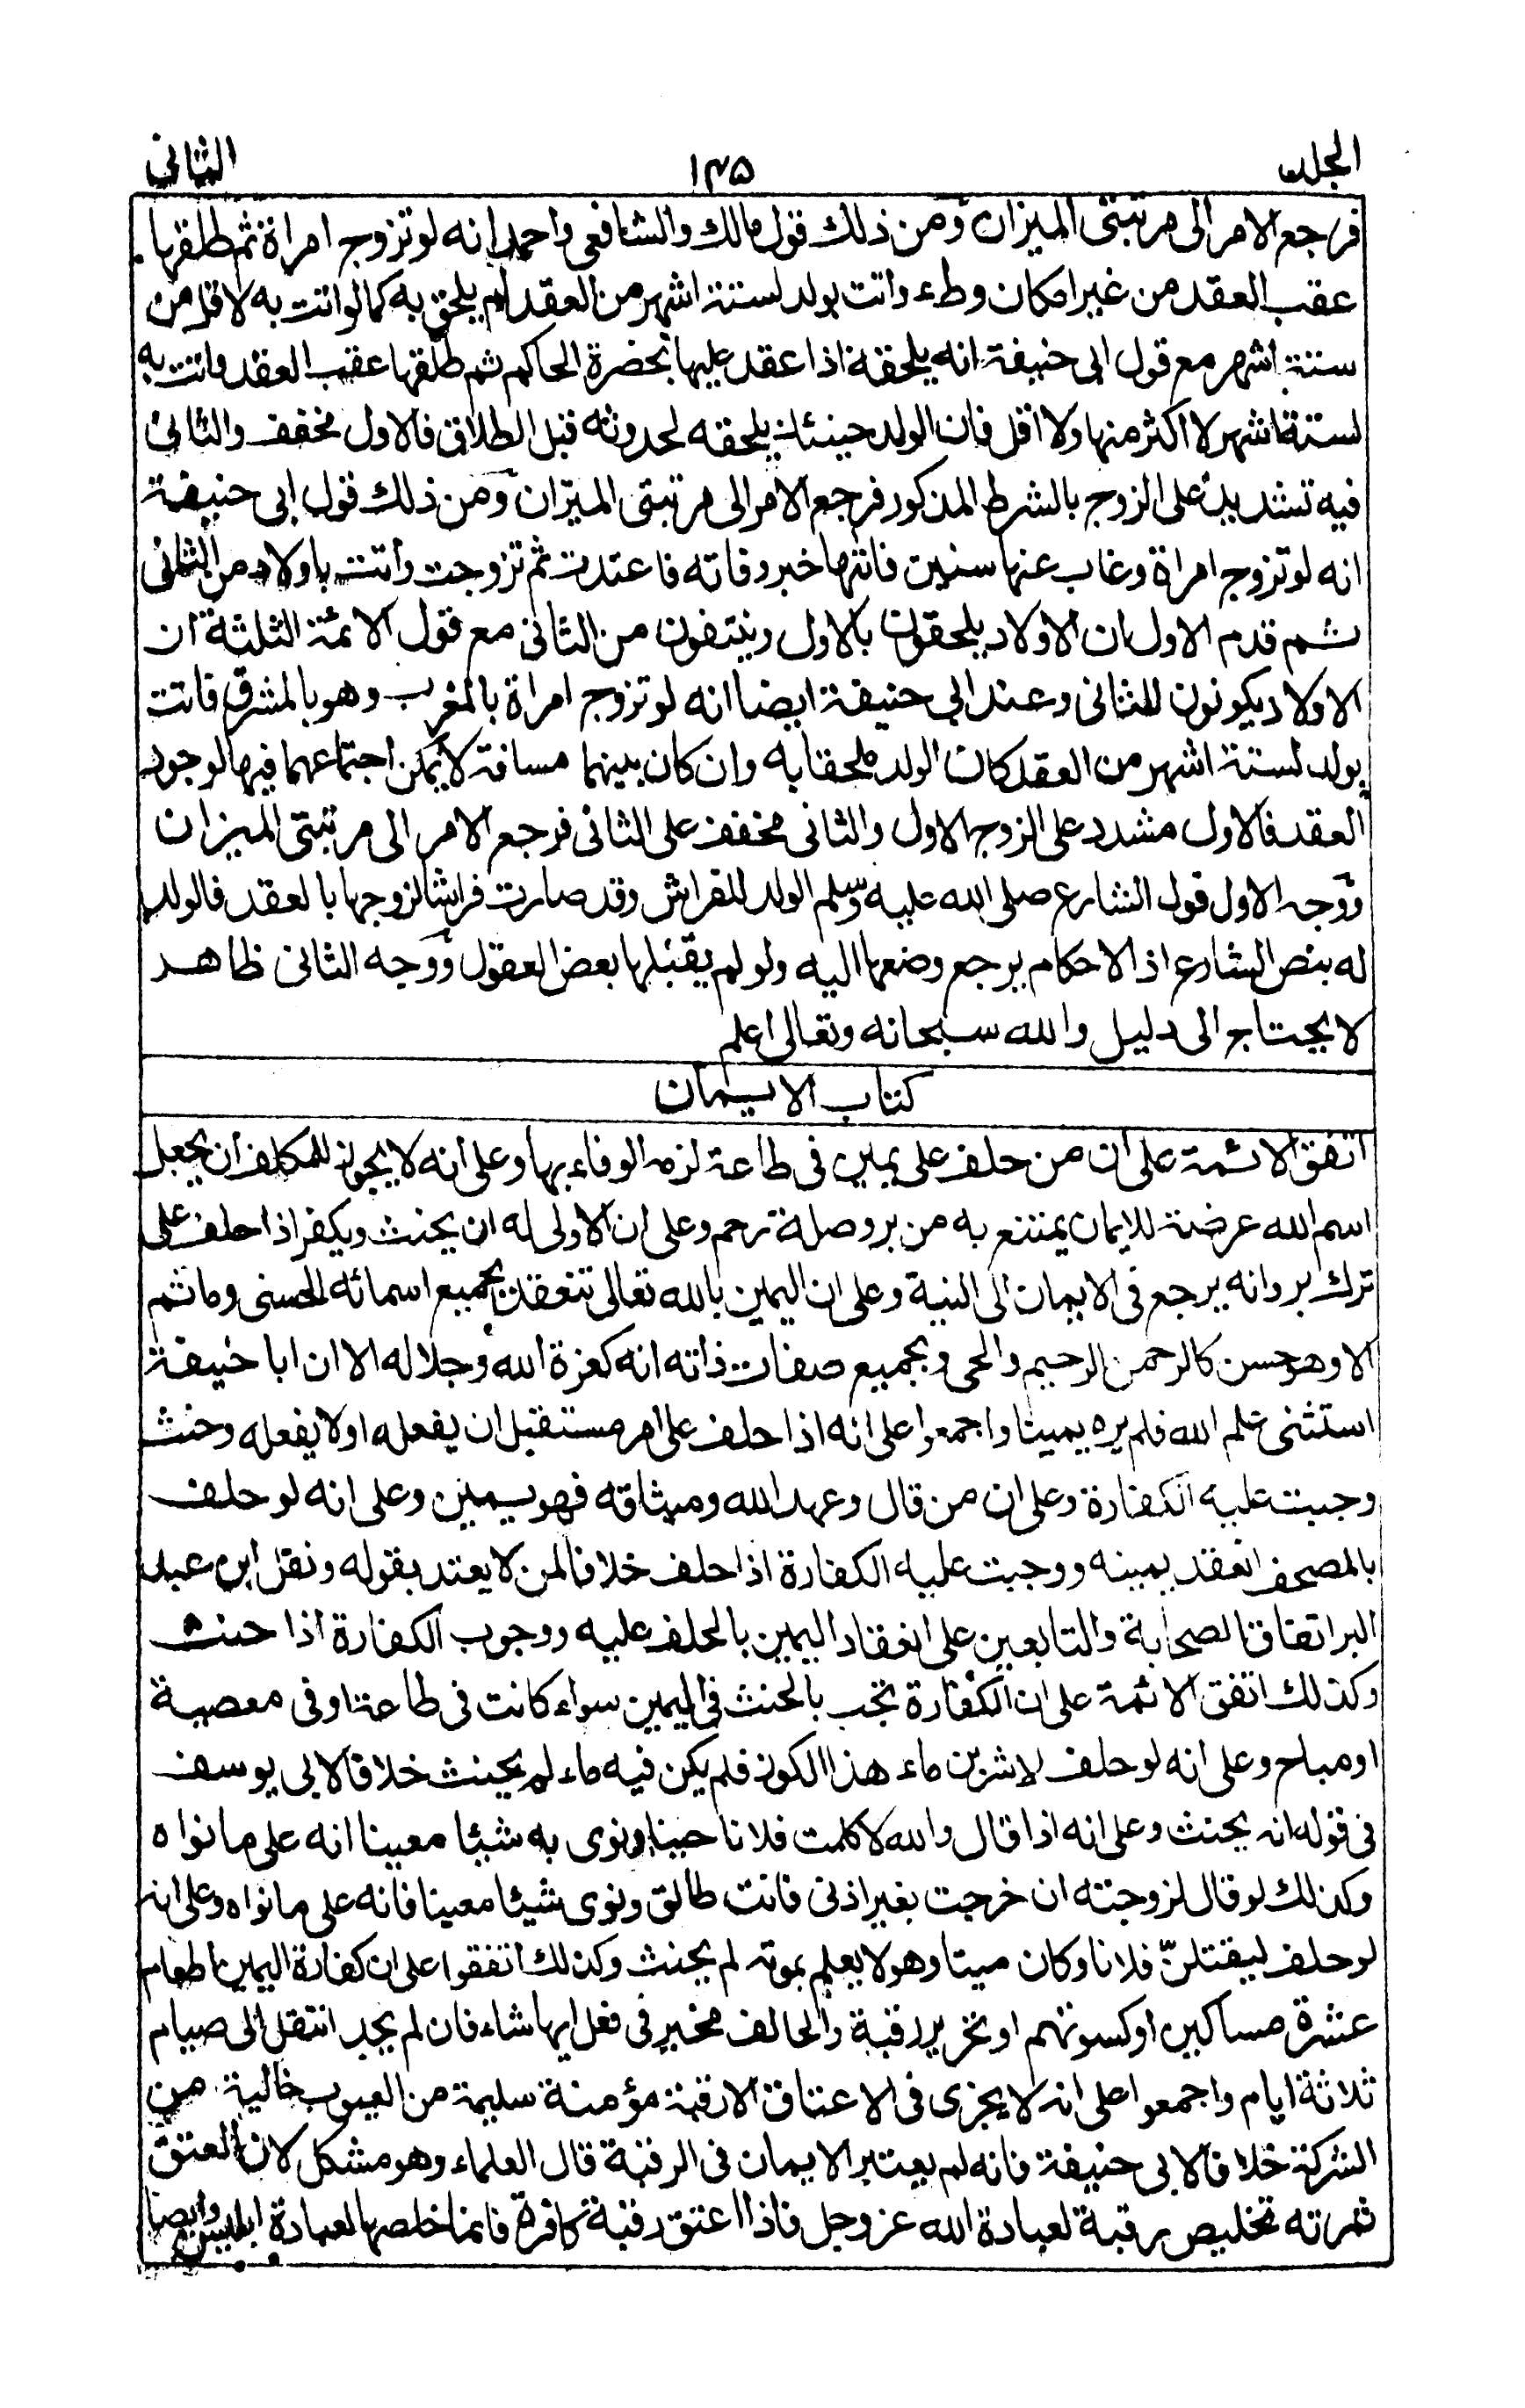 الجلد ١٣٥ الثانى
فرجع الامر الى مرتبتى الميزان ومن ذلك قول مالك والشافعى واحمد انه لو تزوج امراة ثم طلقها
عقب العقد من غير امكان وطء واتت بولد لستة اشهر من العقد لم يلحق به كما لو اتت به لاقل من
ستة اشهر مع قول ابى حنيفة انه يلحقه اذا عقد عليها بحضرة الحاكم ثم طلقها عقب العقد واتت به
لستة اشهر لا اكثر منها ولا اقل فان الولد حينئذ يلحقه لحدوثه قبل الطلاق فالاول مخفف والثانى
فيه تشديد على الزوج بالشرط المذكور فرجع الامر الى مرتبتى الميزان ومن ذلك قول ابى حنيفة
انه لو تزوج امراة وغاب عنها سنين فاتتها خبر وفاته فاعتدت ثم تزوجت واتت باولاد من الثانى
ثم قدم الاول ان الاولاد يلحقون بالاول وينتفون من الثانى مع قول الائمة الثلثة ان
الاولاد يكونون للثانى وعند ابى حنيفة ايضا انه لو تزوج امراة بالمغرب وهو بالمشرق فاتت
بولد لستة اشهر من العقد كان الولد ملحقا به وان كان بينهما مسافة لا يمكن اجتماعهما فيها لوجود
العقد فالاول مشدد على الزوج الاول والثانى مخفف على الثانى فرجع الامر الى مرتبتى الميزان
ووجه الاول قول الشارع صلى الله عليه وسلم الولد للفراش وقد صارت فراشا لزوجها بالعقد فالولد
له بنص الشارع اذ الاحكام يرجع وضعها اليه ولو لم يقبلها بعض العقول ووجه الثانى ظاهر
لا يحتاج الى دليل والله سبحانه وتعالى اعلم
كتاب الايمان
اتفق الائمة على ان من حلف على يمين فى طاعة لزمه الوفاء بها وعلى انه لا يجوز للمكلف ان يجعل
اسم الله عرضة للايمان يمتنع به من بر وصلة رحم وعلى ان الاولى له ان يحنث ويكفر اذا حلف على
ترك بر وانه يرجع فى الايمان الى النية وعلى ان اليمين بالله تعالى تنعقد بجميع اسمائه الحسنى وما ثم
الا وهو حسن كالرحمن الرحيم والحى وبجميع صفات ذاته انه كعزة الله وجلاله الا ان ابا حنيفة
استثنى علم الله فلم يره يمينا واجمعوا على انه اذا حلف على امر مستقبل ان يفعله او لا يفعله وحنث
وجبت عليه الكفارة وعلى ان من قال وعهد الله وميثاقه فهو يمين وعلى انه لو حلف
بالمصحف انعقد يمينه ووجبت عليه الكفارة اذا حلف خلافا لمن لا يعتد بقوله ونقل ابن عبد
البر اتفاق الصحابة والتابعين على انعقاد اليمين بالحلف عليه ووجوب الكفارة اذا حنث
وكذلك اتفق الائمة على ان الكفارة تجب بالحنث فى اليمين سواء كانت فى طاعة او فى معصية
او مباح وعلى انه لو حلف لاشربن ماء هذا الكوز فلم يكن فيه ماء لم يحنث خلافا لابى يوسف
فى قوله انه يحنث وعلى انه اذا قال والله لا كلمت فلانا حينا ونوى به شيئا معينا انه على ما نواه
وكذلك لو قال لزوجته ان خرجت بغير اذنى فانت طالق ونوى شيئا معينا فانه على ما نواه وعلى انه
لو حلف ليقتلنّ فلانا وكان ميتا وهو لا يعلم بموته لم يحنث وكذلك اتفقوا على ان كفارة اليمين اطعام
عشرة مساكين او كسوتهم او تحرير رقبة والحالف مخير فى فعل ايها شاء فان لم يجد انتقل الى صيام
ثلاثة ايام واجمعوا على انه لا يجزى فى الاعتاق الا رقبة مؤمنة سليمة من العيوب خالية من
الشركة خلافا لابى حنيفة فانه لم يعتبر الايمان فى الرقبة قال العلماء وهو مشكل لان العتق
ثمرته تخليص رقبة لعبادة الله عز وجل فاذا اعتق رقبة كافرة فانما خلصها لعبادة ابليس وايضا